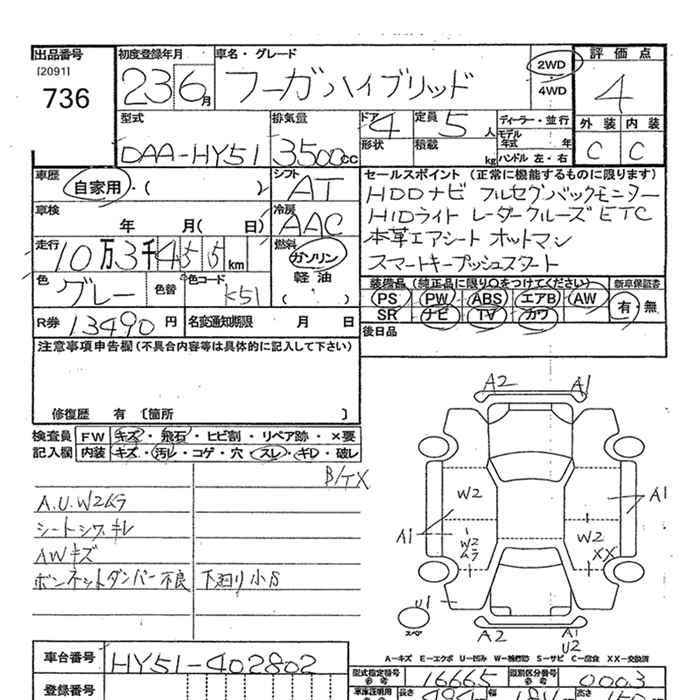 出品番号 初度登録年月 車名・グレード 評価点
[2091]
736 23 6月 フーガハイブリッド 2WD 4WD 4
型式 排気量 ドア 4 定員 5人 ディーラー・並行 外装 内装
DAA-HY51 3500cc 形状 積載 kg モデル年式 年 ハンドル 左・右 C C
車歴 自家用・( ) シフト AT セールスポイント(正常に機能するものに限ります)
HDDナビ フルセグバックモニター
車検 年 月( 日) 冷房 AAC HIDライト レーダークルーズ ETC
走行 10万3千455km 燃料 ガソリン 軽油 ( ) 本革エアシート オットマン
スマートキープッシュスタート
色 グレー 色替 色コード K51 装備品(純正品に限り○をつけてください) 新車保証書
PS PW ABS エアB AW 有・無
R券 13490円 名変通知期限 月 日 SR ナビ TV カワ
注意事項申告欄(不具合内容等は具体的に記入して下さい) 後日品
修復歴 有 [箇所 ]
検査員 FW キズ・飛石・ヒビ割・リペア跡・×要
記入欄 内装 キズ・汚レ・コゲ・穴・スレ・キレ・破レ
B/TX
A.U.W2ムラ
シートシワ.キレ
AWキズ
ボンネットダンパー不良 下廻り小S
A2 A1
W2 A1
A1 W2ムラ W2 XX
U1
スペア A2 A1 U2
A-キズ E-エクボ U-凹み W-補修跡 S-サビ C-腐食 XX-交換済
車台番号 HY51-402802 型式指定番号 参考 16665 類別区分番号 参考 0003
登録番号 長さ 幅 高さ